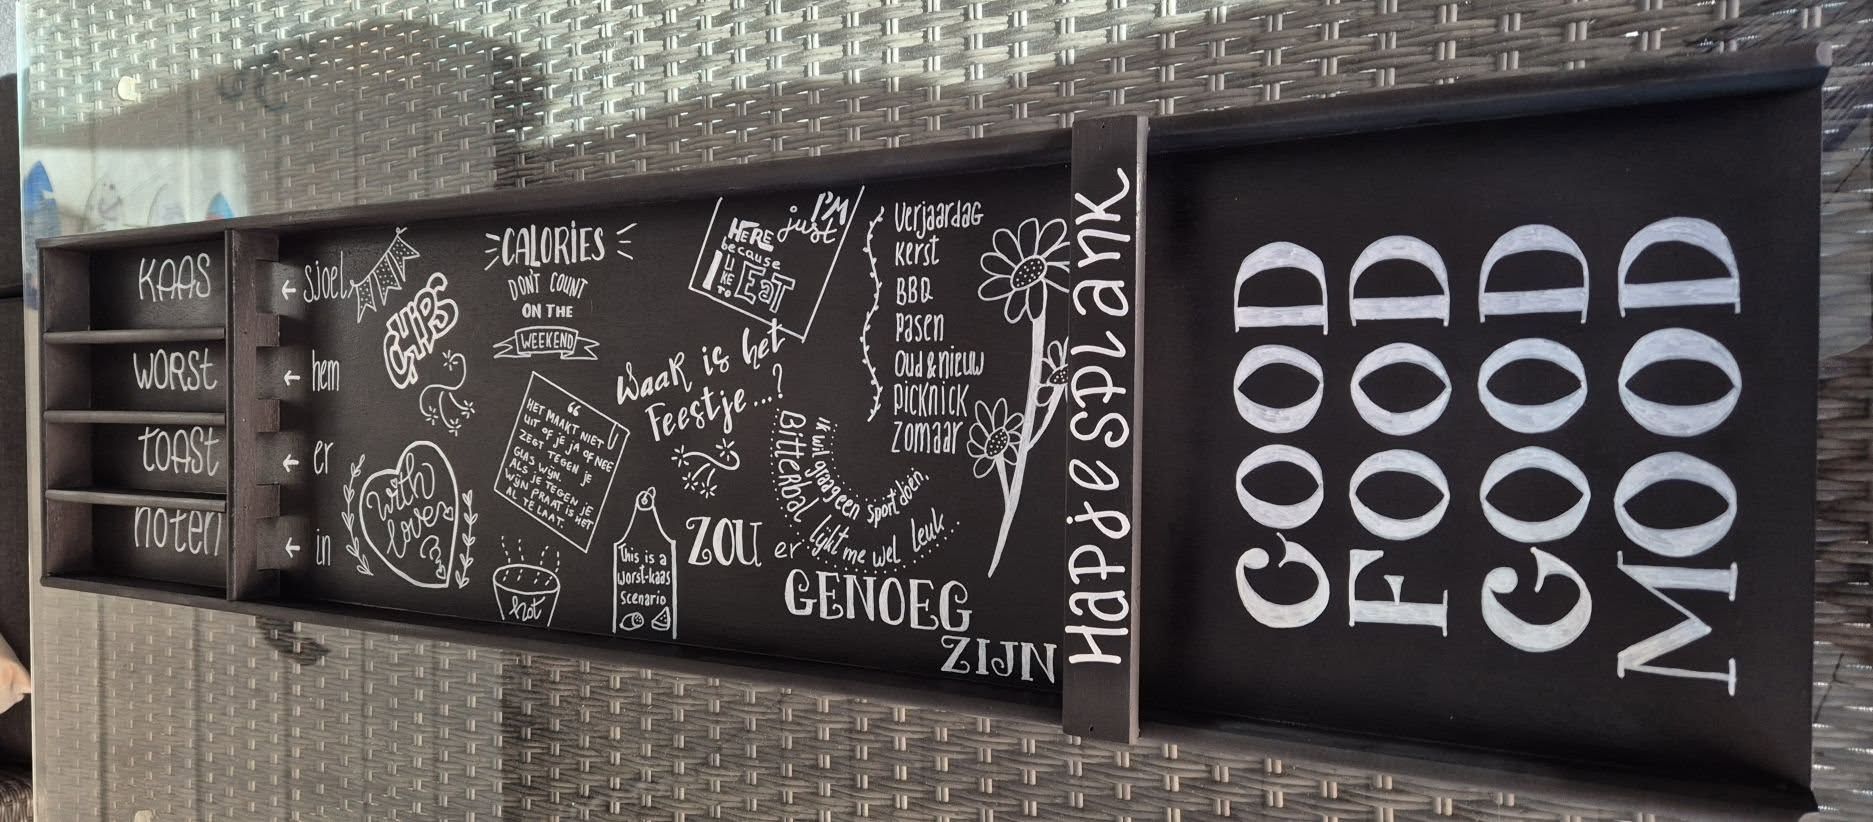 KAAS
WORST
TOAST
noten
← sjoel
← hem
← er
← in
CHIPS
With
love
CALORIES
DON'T COUNT
ON THE
WEEKEND
“
HET MAAKT NIET U
UIT OF JE JA OF NEE
ZEGT TEGEN JE
GLAS WIJN.
ALS JE TEGEN JE
WIJN PRAAT IS HET
AL TE LAAT.
hot
This is a
worst-kaas
scenario
I'M
just
HERE
because
I LIKE
TO EAT
Waar is het
Feestje...?
Verjaardag
Kerst
BBQ
Pasen
Oud & nieuw
Picknick
Zomaar
Ik wil graag een sport doen.
Bitterbal lijkt me wel leuk...
ZOU er
GENOEG
ZIJN
Hapjesplank
GOOD
FOOD
GOOD
MOOD